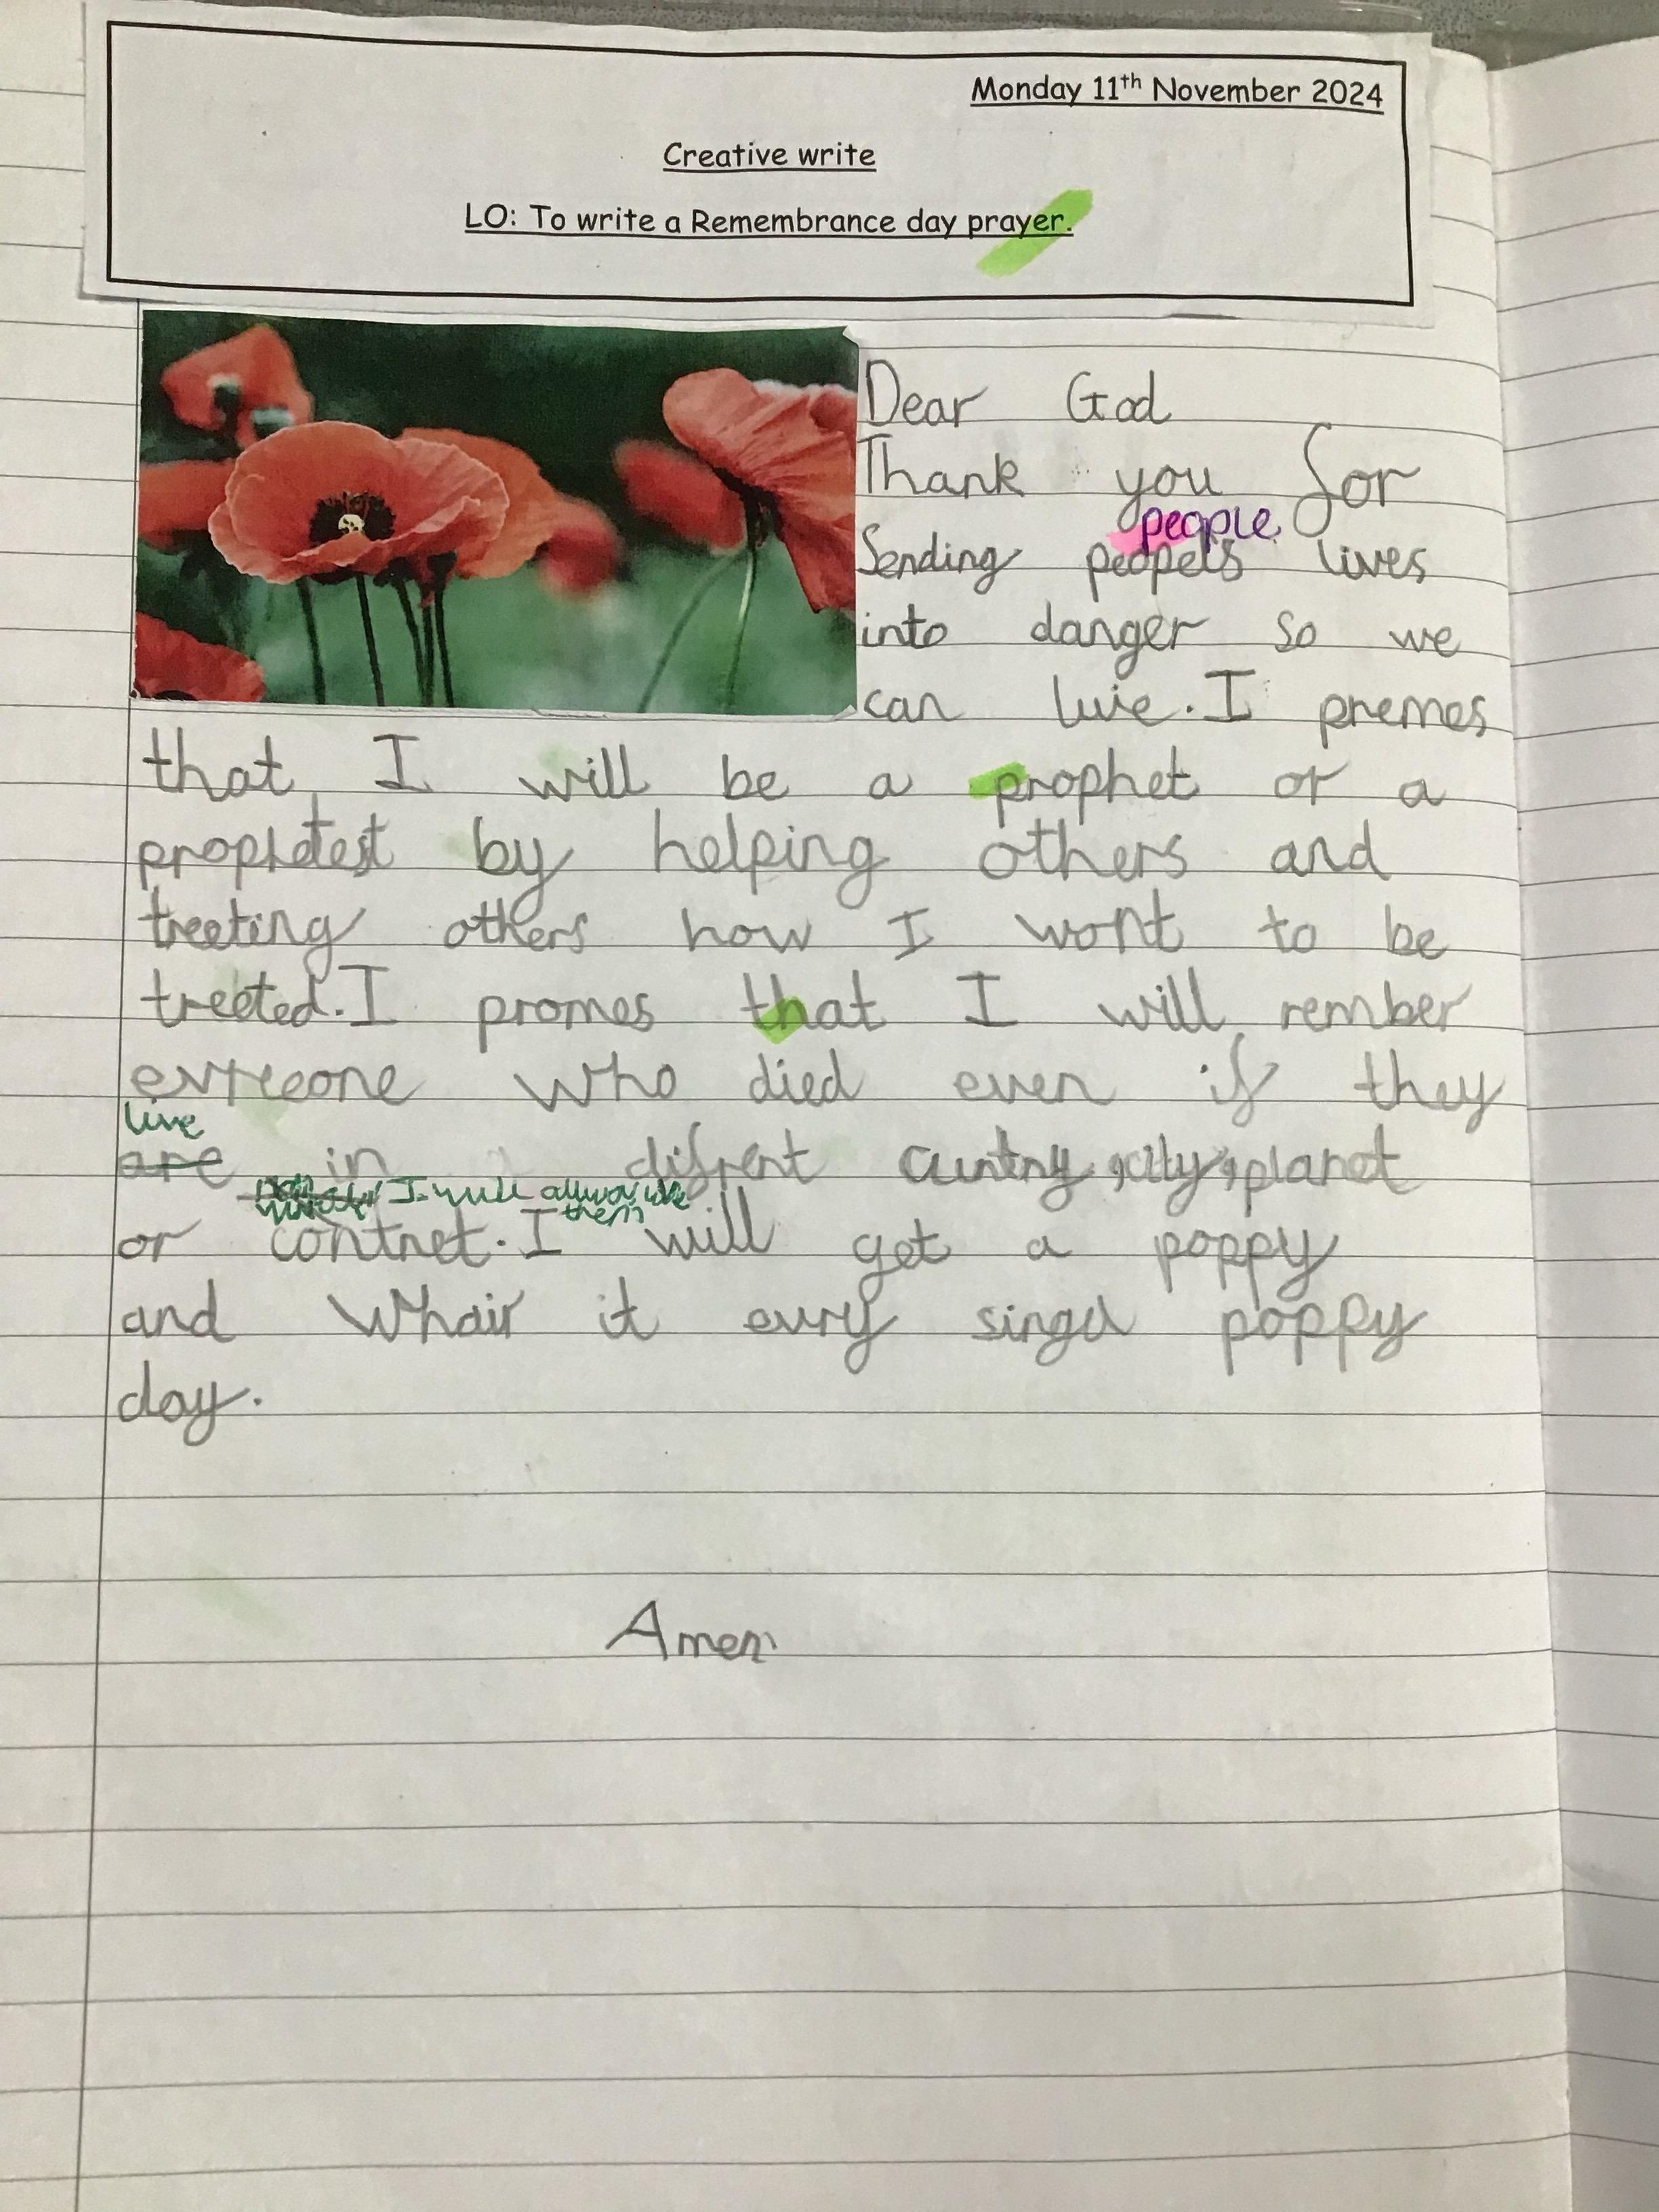 Monday 11th November 2024
Creative write
LO: To write a Remembrance day prayer.
Dear God
Thank you for
people
Sending peopels lives
into danger so we
can live. I premes
that I will be a prophet or a
prophetest by helping others and
treeting others how I wont to be
treeted. I promes that I will rember
evreeone who died even if they
live
are in difrent cuntry, city, planet
I will allways like
them
or contnet. I will get a poppy
and Whair it evry singel poppy
day.
Amen